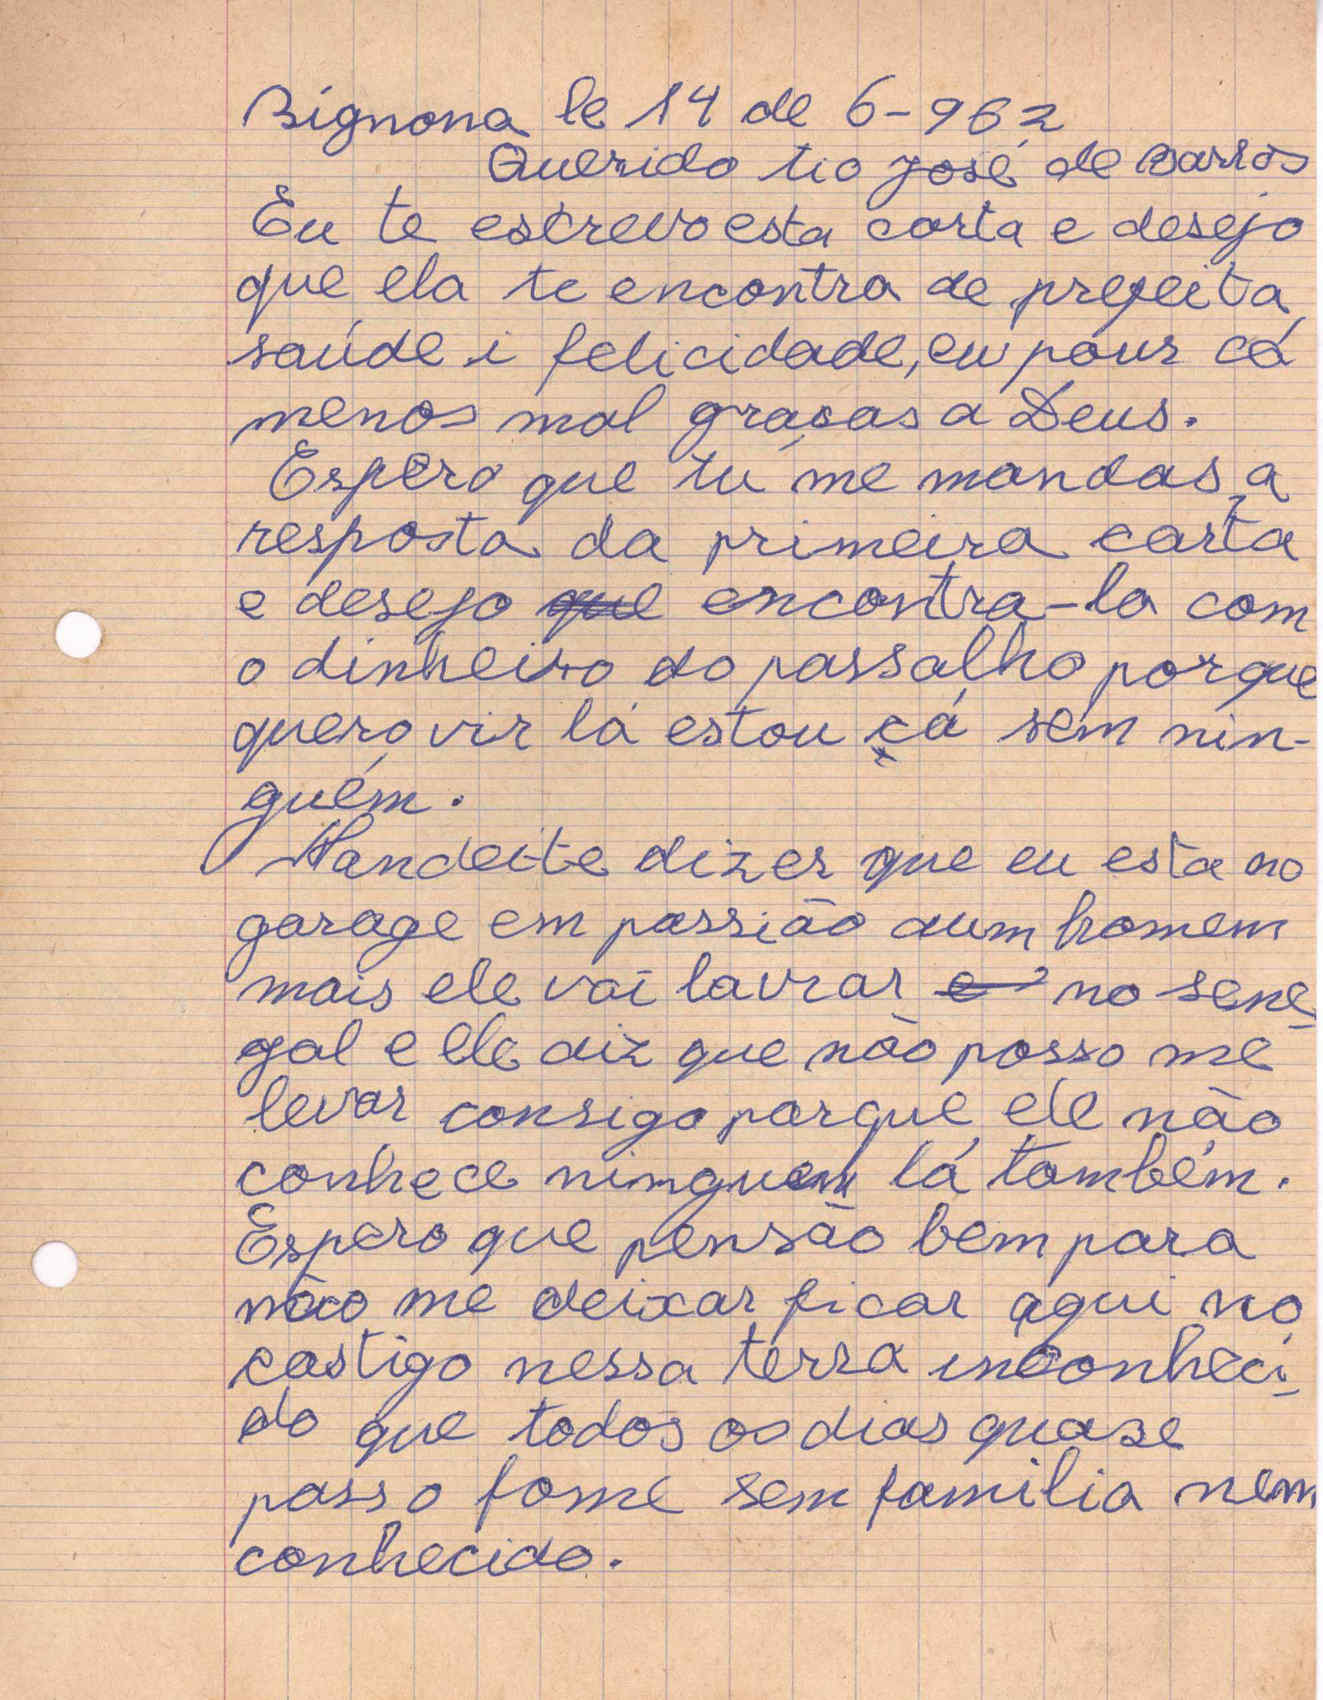 Bignona le 14 de 6-962
Querido tio José de Barros
Eu te escrevo esta carta e desejo
que ela te encontra de prefeita
saúde i felicidade, eu pour cá
menos mal graças a Deus.
Espero que tu me mandas a
resposta da primeira carta
e desejo que encontra-la com
o dinheiro do passalho porque
quero vir lá estou cá sem nin-
guém.
Mandei-te dizer que eu esta no
garage em passião dum homem
mais ele vai lavrar e no sene-
gal e ele diz que não posso me
levar consigo porque ele não
conhece ninguem lá também.
Espero que pensão bem para
não me deixar ficar aqui no
castigo nessa terra inconheci-
do que todos os dias quase
passo fome sem familia nem
conhecido.